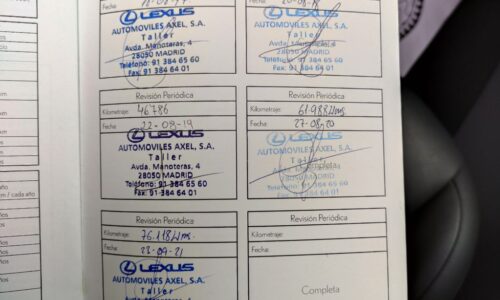 Fecha:
LEXUS
AUTOMOVILES AXEL, S.A.
Taller
Avda. Manoteras, 4
28050 MADRID
Teléfono: 91 384 65 60
Fax: 91 384 64 01
Fecha:
LEXUS
AUTOMOVILES AXEL, S.A.
Taller
Avda. Manoteras, 4
28050 MADRID
Teléfono: 91 384 65 60
Fax: 91 384 64 01
Revisión Periódica
Kilometraje: 46.786
Fecha: 22-08-19
LEXUS
AUTOMOVILES AXEL, S.A.
Taller
Avda. Manoteras, 4
28050 MADRID
Teléfono: 91 384 65 60
Fax: 91 384 64 01
Revisión Periódica
Kilometraje: 61.988 kms
Fecha: 27-08-20
LEXUS
AUTOMOVILES AXEL, S.A.
Taller
Avda. Manoteras, 4
28050 MADRID
Completa
Teléfono: 91 384 65 60
Fax: 91 384 64 01
Revisión Periódica
Kilometraje: 76.118 kms
Fecha: 23-09-21
LEXUS
AUTOMOVILES AXEL, S.A.
Taller
Avda. Manoteras, 4
28050 MADRID
Revisión Periódica
Kilometraje:
Fecha:
Completa
km / cada año
años
años
años
años